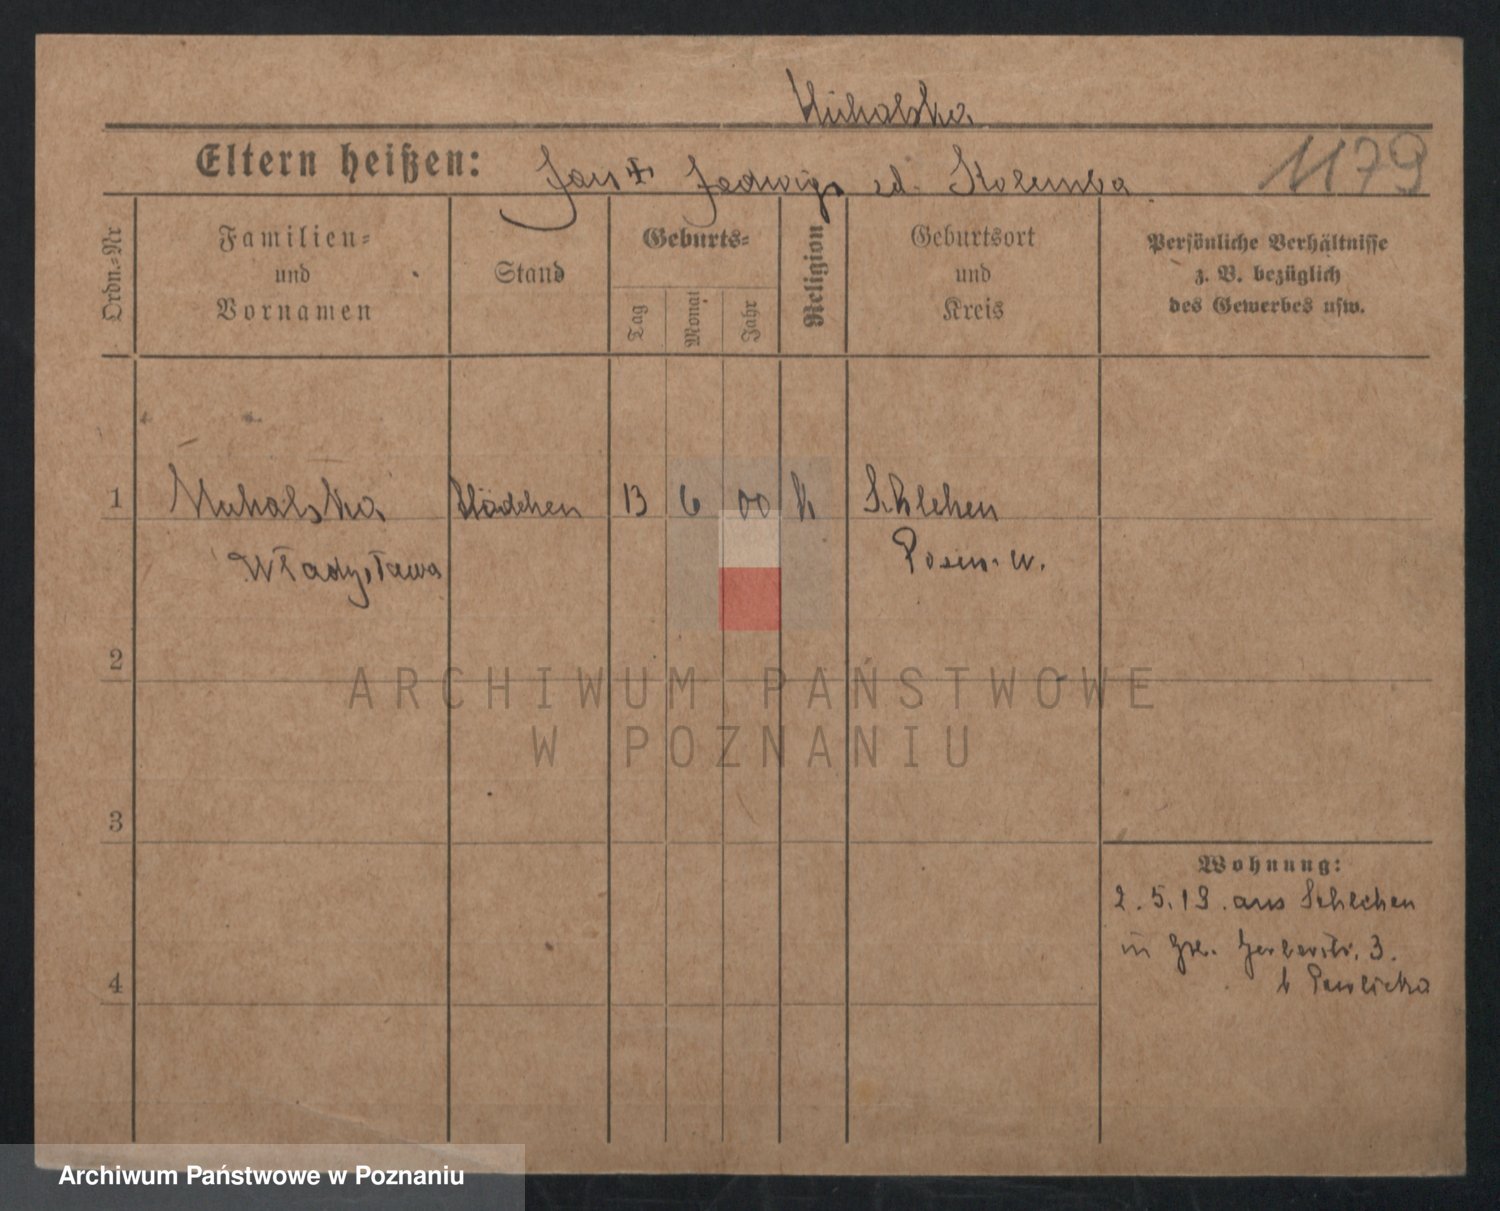 Muhalska
Eltern heißen: Jan + Jadwiga
1179
Ordn.-Nr
Familien-
und
Vornamen
Stand
Geburts-
Tag
Monat
Jahr
Religion
Geburtsort
und
Kreis
Persönliche Verhältnisse
z. B. bezüglich
des Gewerbes usw.
1 Muhalska Mädchen 13 6 00 k Schlehen
Władysława Posen. W.
2
ARCHIWUM PAŃSTWOWE
W POZNANIU
3
Wohnung:
2.5.19. aus Schlehen
in Gerberstr. 3.
4
b Pawlicka
Archiwum Państwowe w Poznaniu